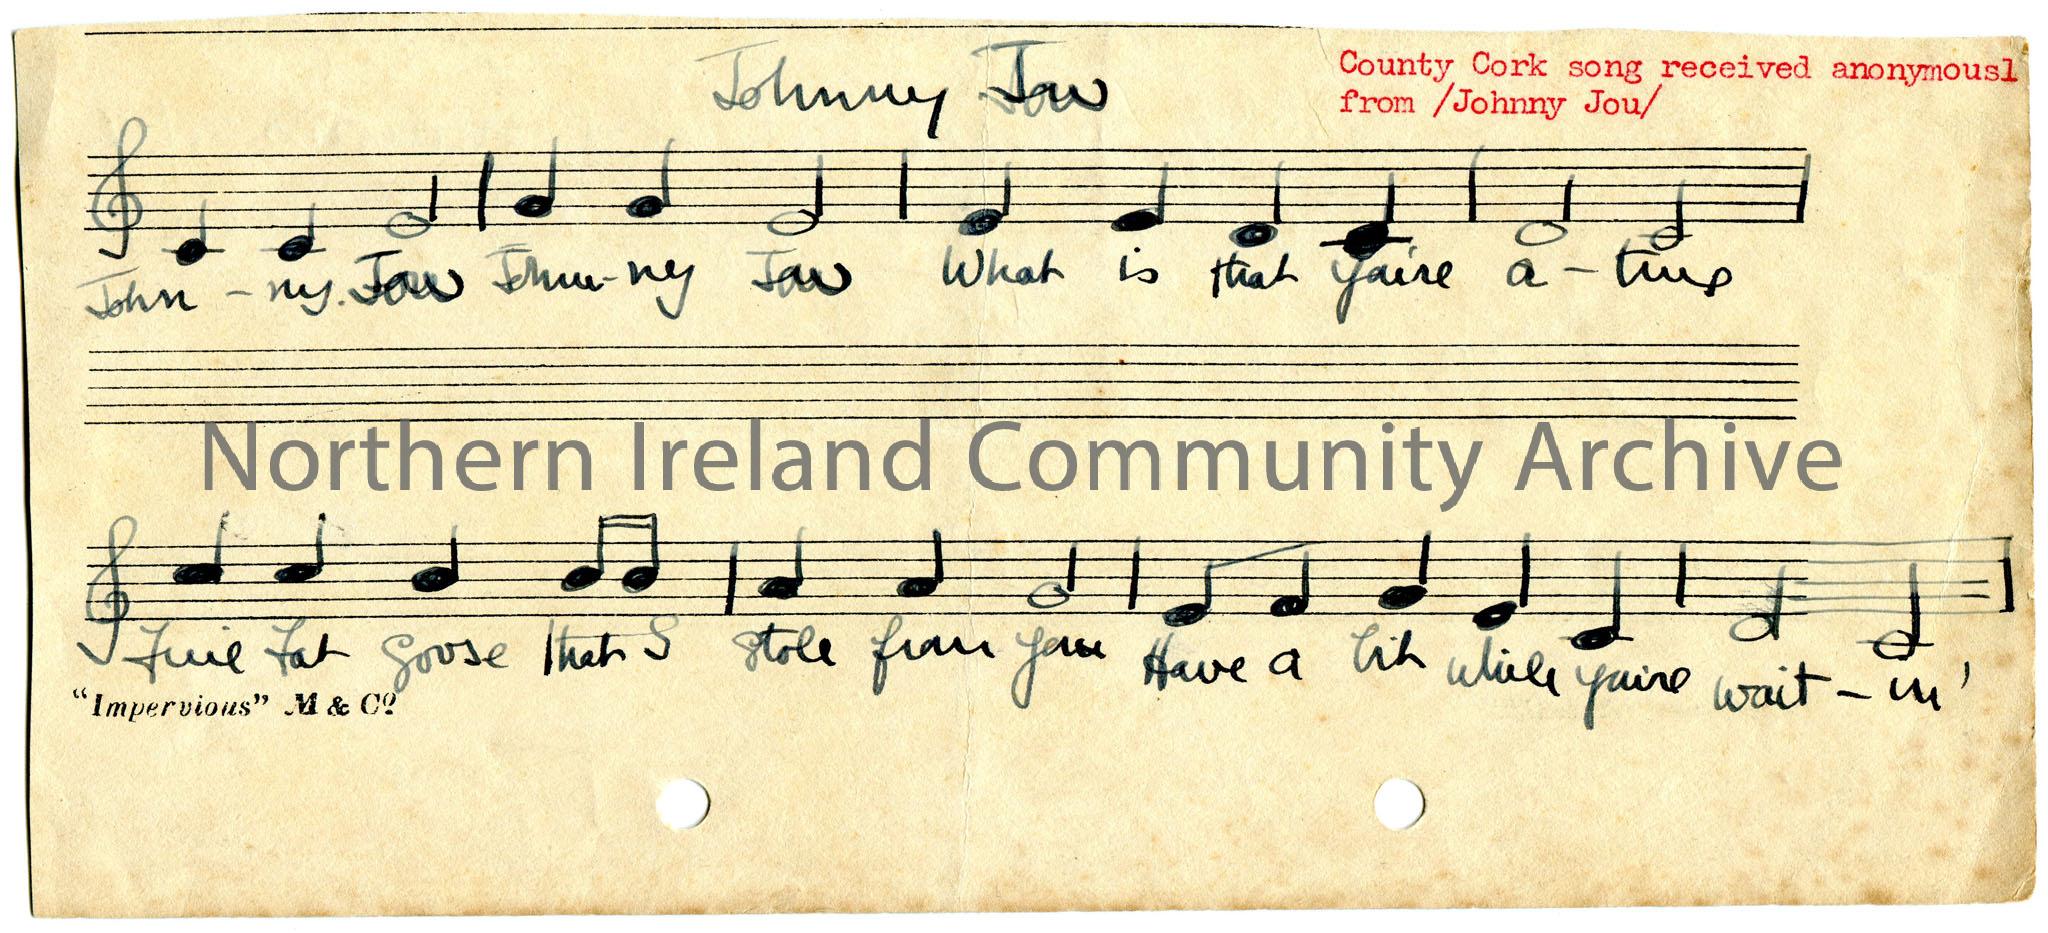 Johnny Jow
County Cork song received anonymousl
from /Johnny Jou/
John - ny. Jow Johnn-ny Jow What is that you're a - tin
Northern Ireland Community Archive
Fine Fat Goose that I stole from you Have a bit while you're wait - in'
"Impervious" M & Co.